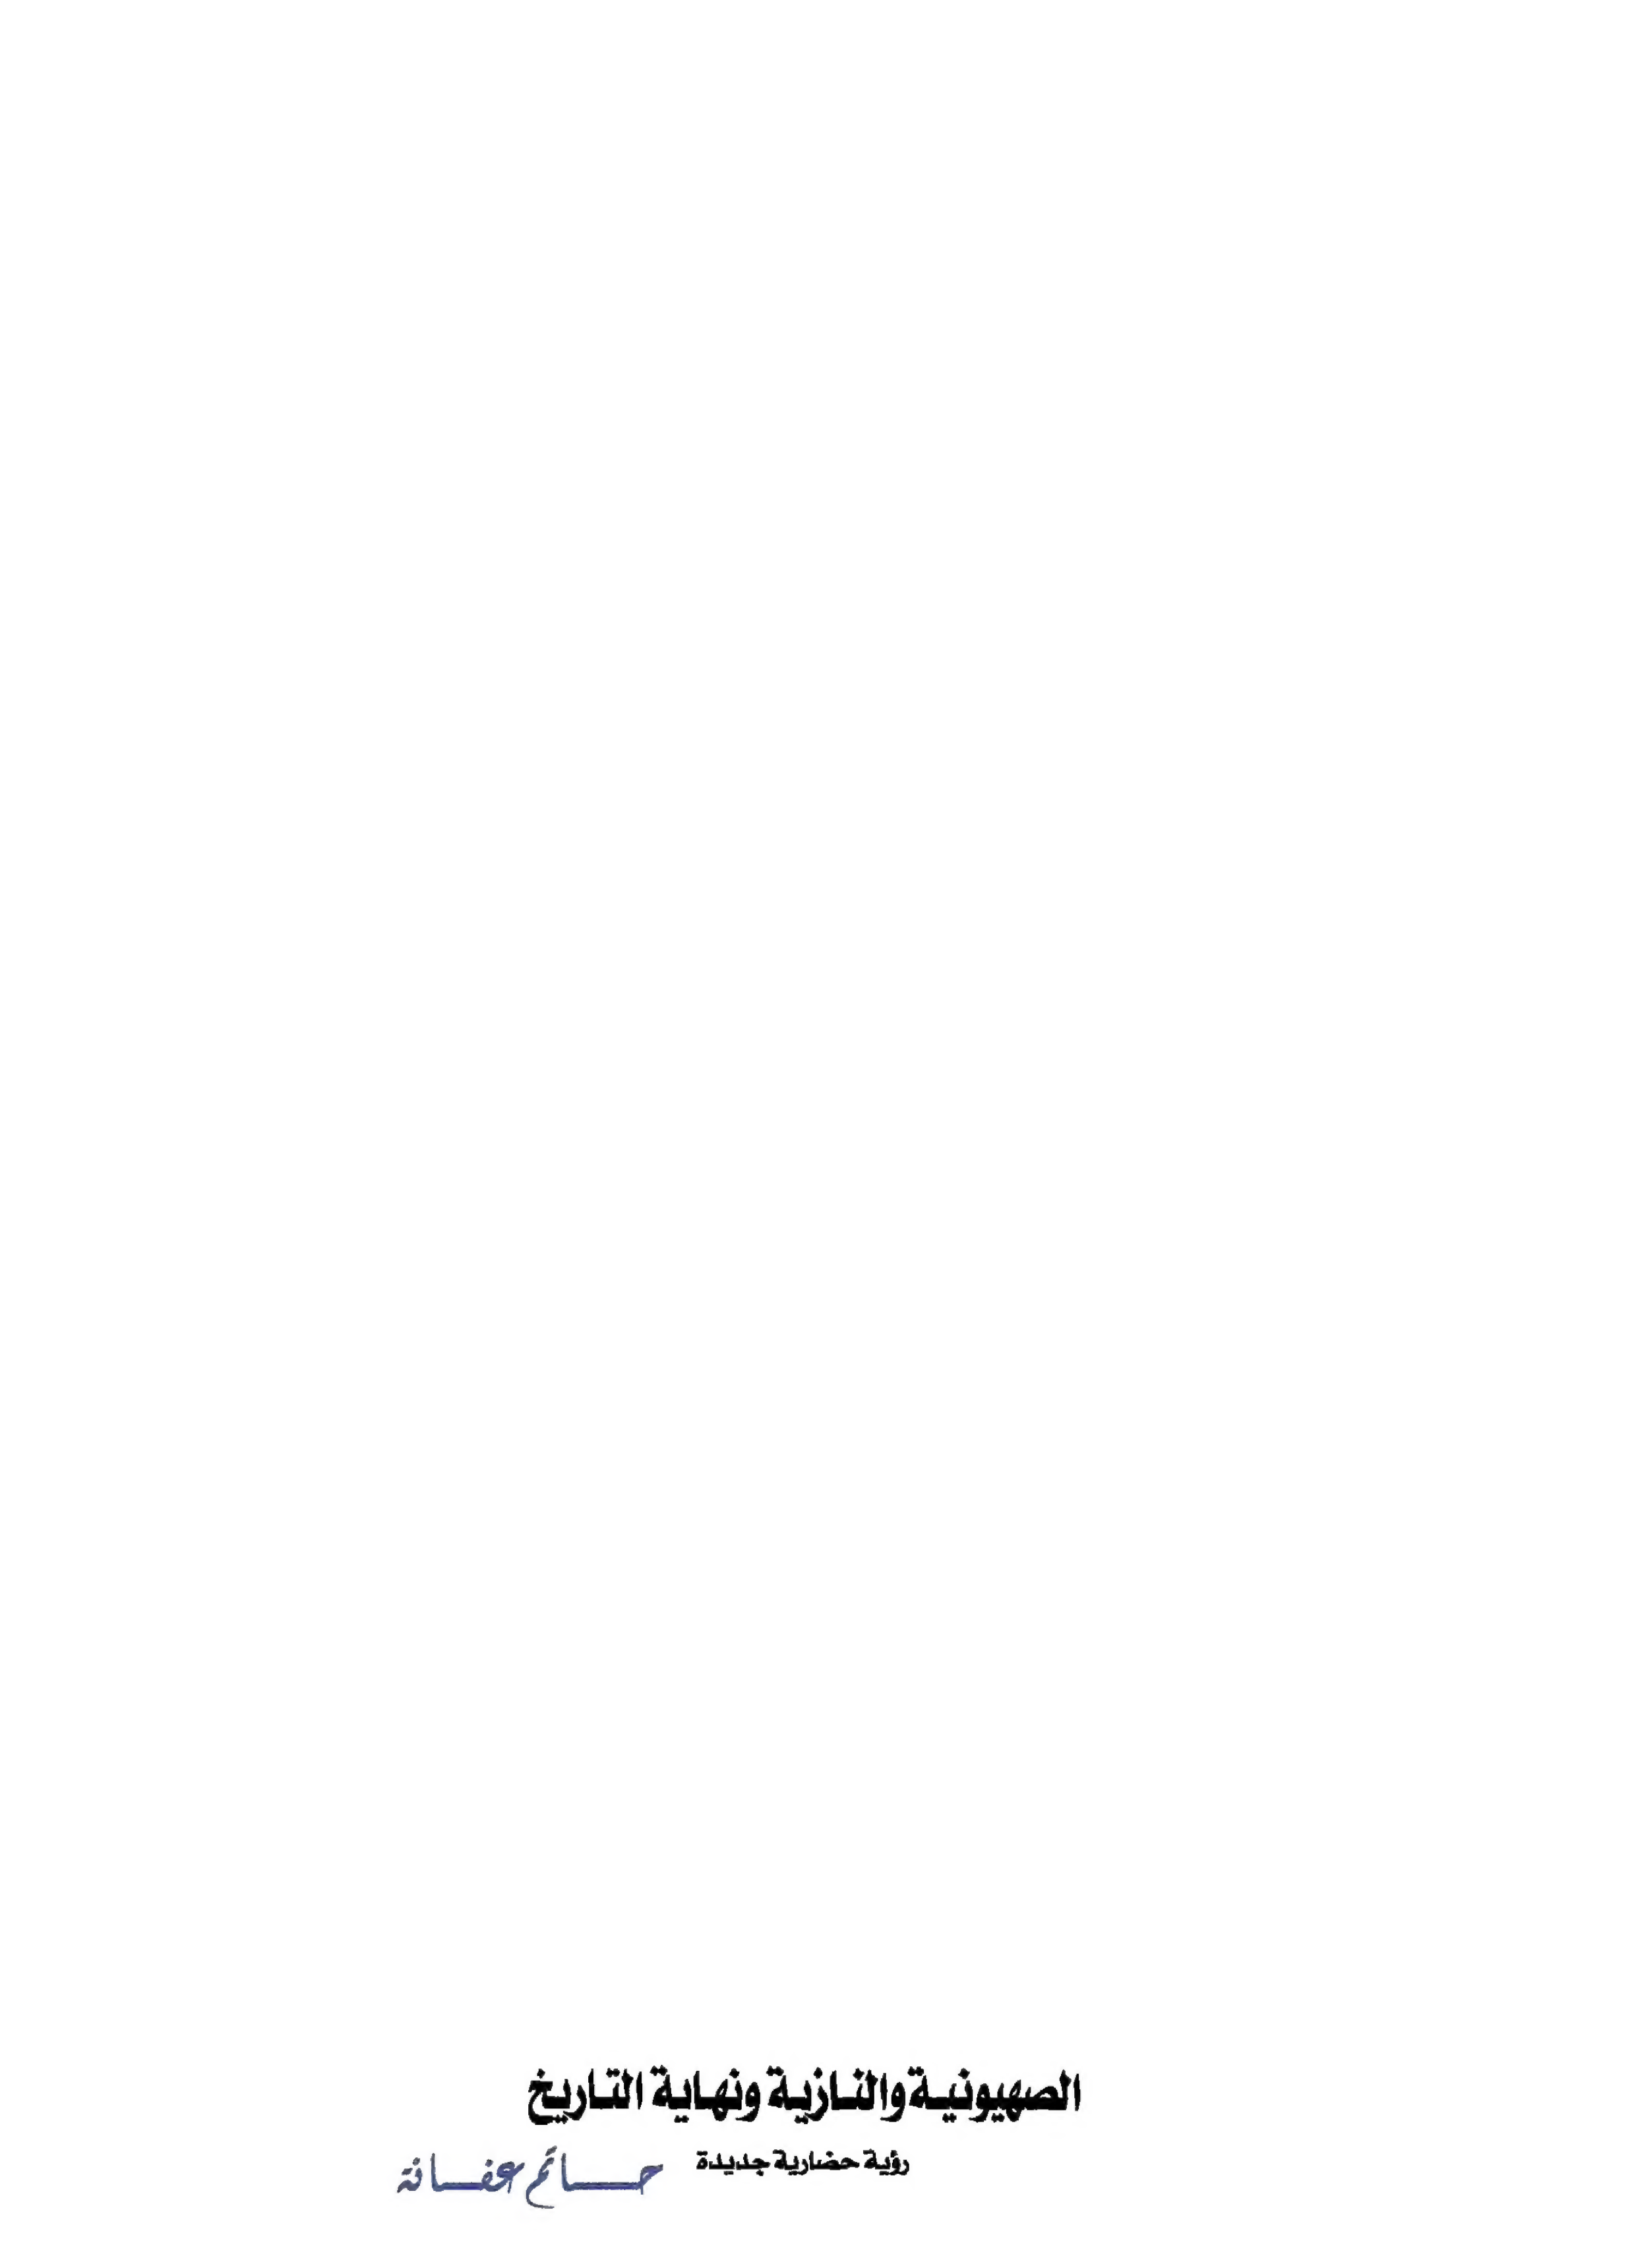 الصهيونية والنازية ونهاية التاريخ
رؤية حضارية جديدة
حاتم عفانة